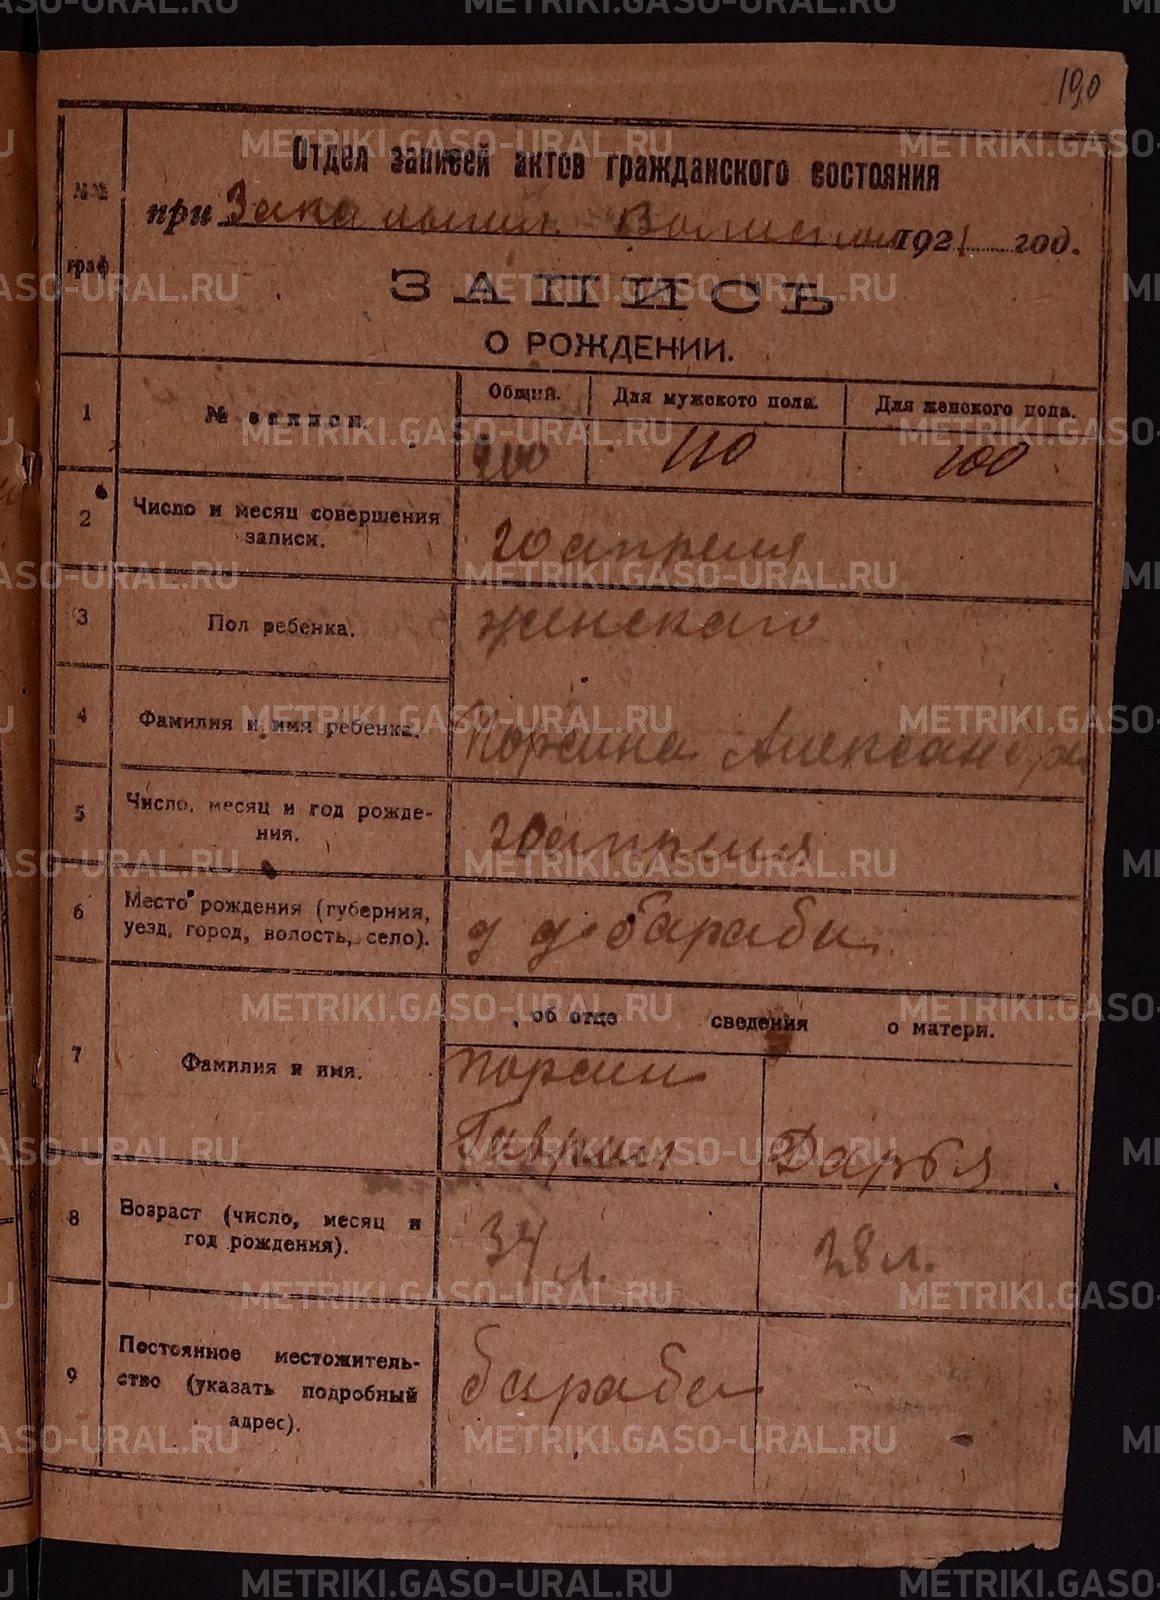 190
№№
граф
Отдел записей актов гражданского состояния
при 1921 год.
ЗАПИСЬ
О РОЖДЕНИИ.
1
№ записи.
Общий.
Для мужского пола.
Для женского пола.
110
100
2
Число и месяц совершения
записи.
20 апреля
3
Пол ребенка.
женскаго
4
Фамилия и имя ребенка.
Порсина Александра
5
Число, месяц и год рожде-
ния.
20 апреля
6
Место рождения (губерния,
уезд, город, волость, село).
Бараби
7
Фамилия и имя.
об отце сведения о матери.
Порсин
Гаврил
Дарья
8
Возраст (число, месяц и
год рождения).
34 л.
28 л.
9
Постоянное местожитель-
ство (указать подробный
адрес).
бараби
METRIKI.GASO-URAL.RU